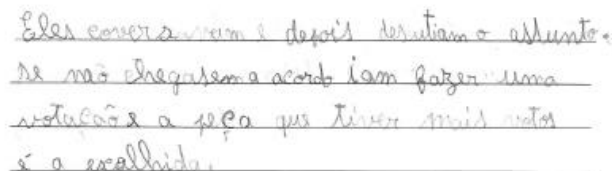 Eles coversavam e depois desutiam o assunto.
se não chegasem a acordo iam fazer uma
votação e a peça que tiver mais votos
é a escolhida.